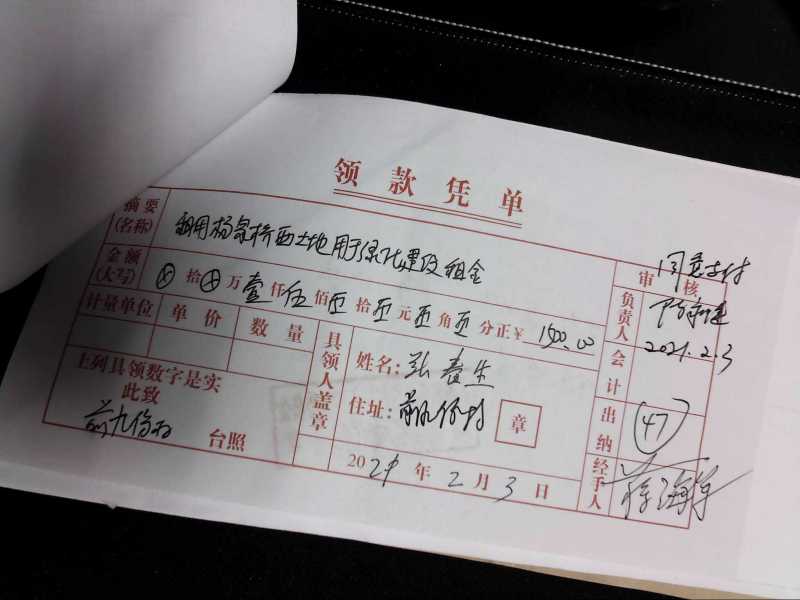 领款凭单
摘要(名称) 租用杨家桥西土地用于绿化建设租金
金额(大写) ⊗拾⊗万壹仟伍佰零拾零元零角零分正¥ 1500.00
计量单位 单价 数量
上列具领数字是实
此致
台照
具领人盖章
姓名:张春生
住址:
章
2021年2月3日
审核 同意支付
负责人
2021.2.3
会计
出纳 47
经手人